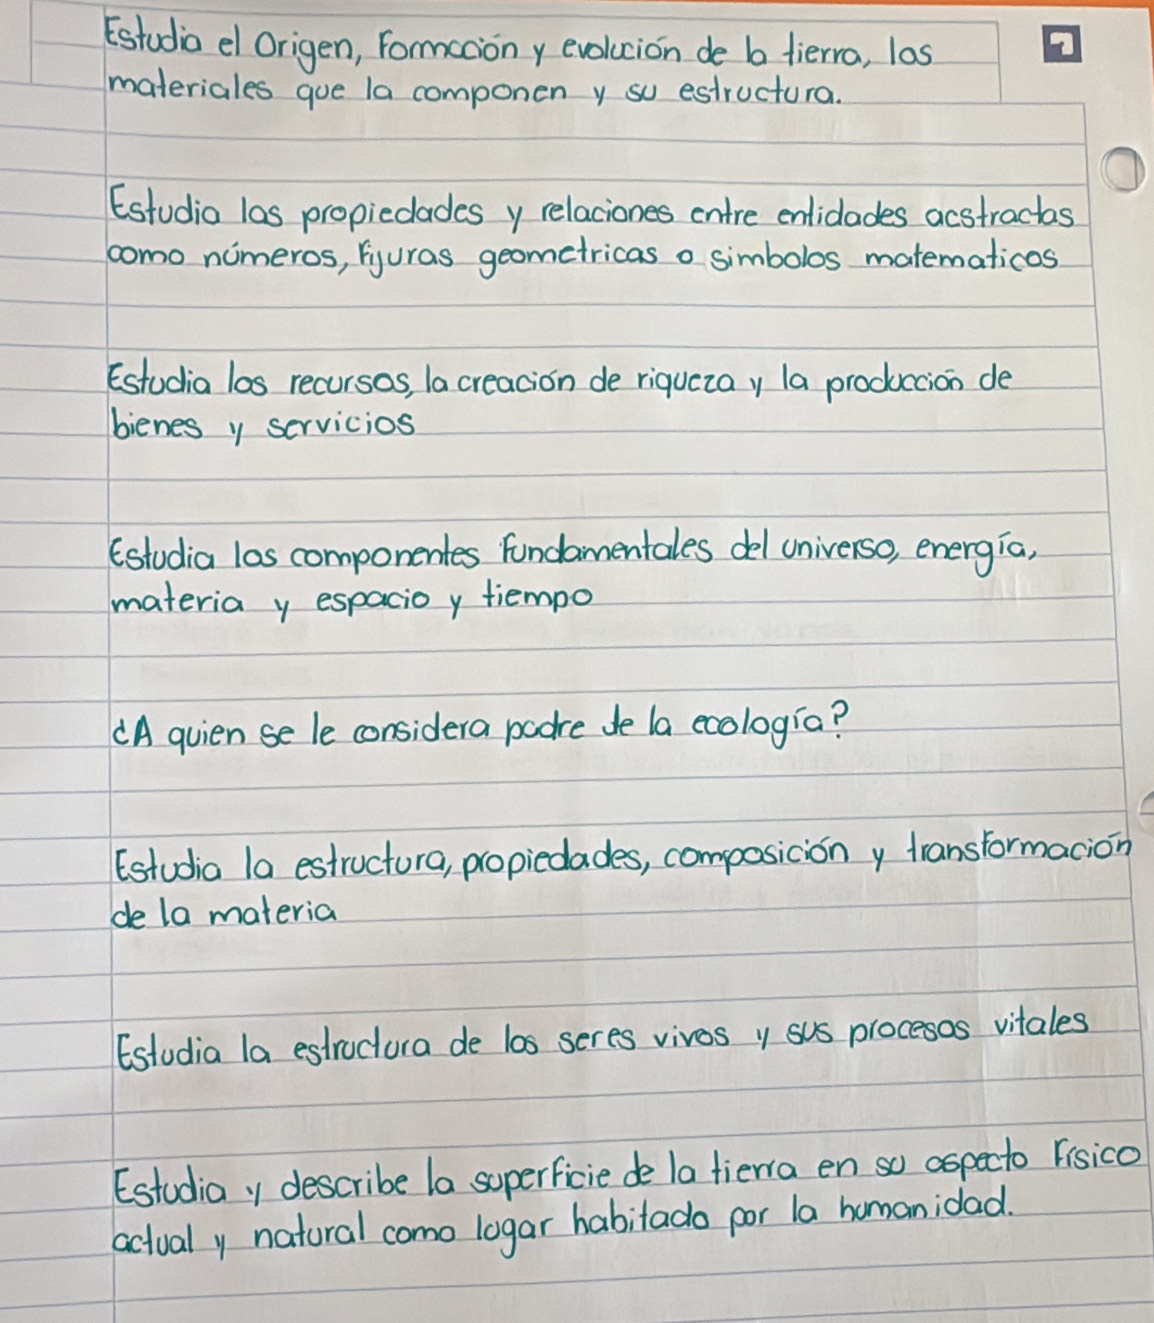 Estudia el Origen, Formación y evolución de la tierra, los
materiales que la componen y su estructura.
Estudia las propiedades y relaciones entre entidades acstractas
como números, Figuras geometricas o simbolos matematicos
Estudia los recursos, la creación de riqueza y la producción de
bienes y servicios
Estudia los componentes fundamentales del universo, energía,
materia y espacio y tiempo
¿A quien se le considera padre de la ecología?
Estudia la estructura, propiedades, composición y transformación
de la materia
Estudia la estructura de los seres vivos y sus procesos vitales
Estudia y describe la superficie de la tierra en su aspecto Físico
actual y natural como lugar habitado por la humanidad.